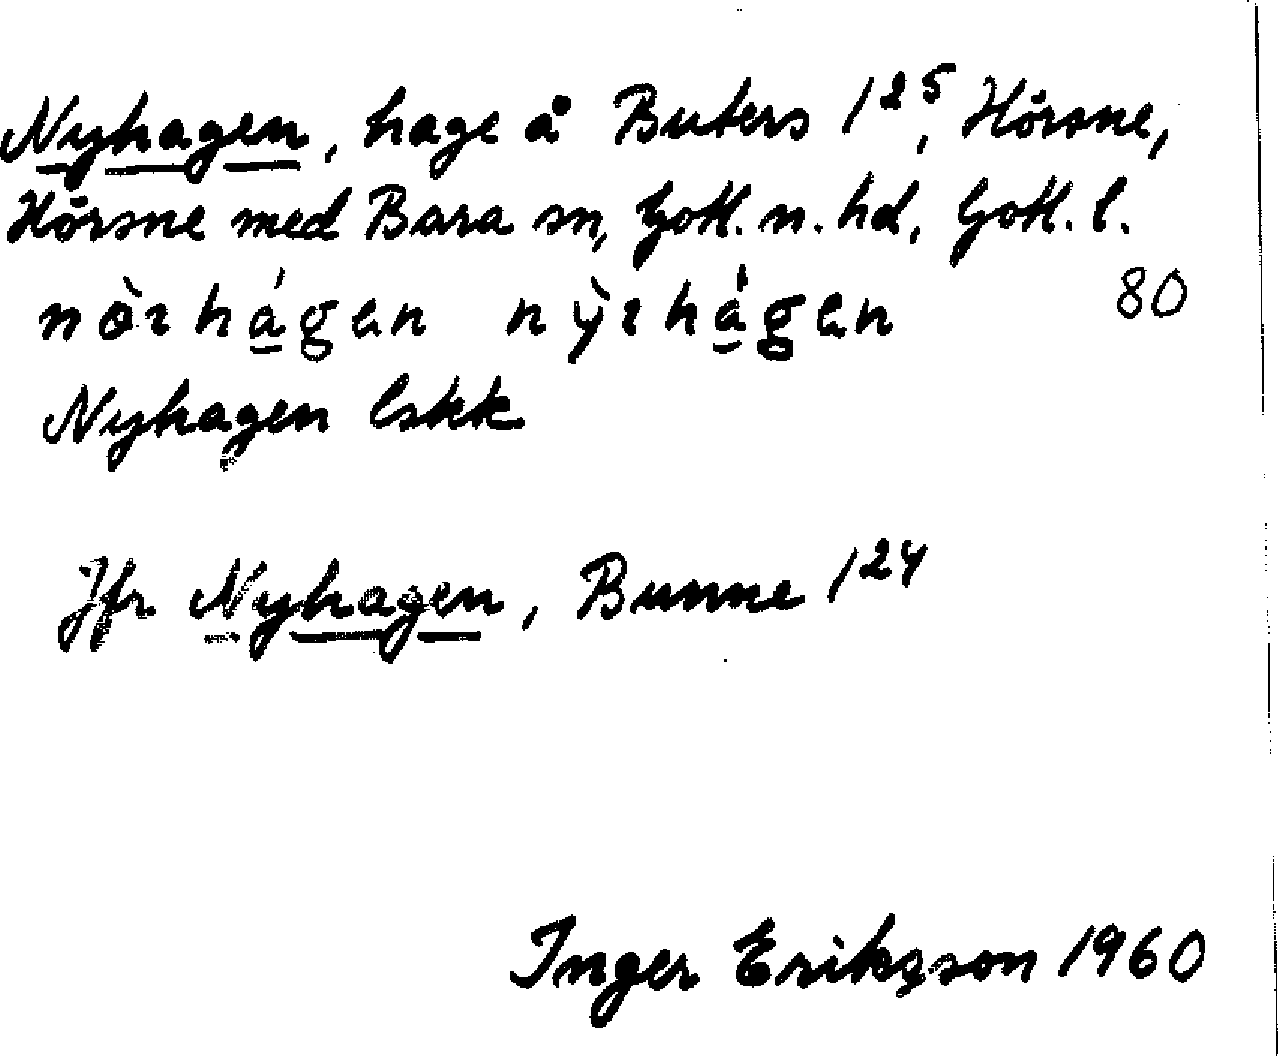 Nyhagen, hage å Buters 1²⁵, Hörsne,
Hörsne med Bara sn, Gotl. n. hd, Gotl. l.
80
Nyhagen Eskk
Jfr Nyhagen, Bunne 1²⁴
Inger Erikzson 1960